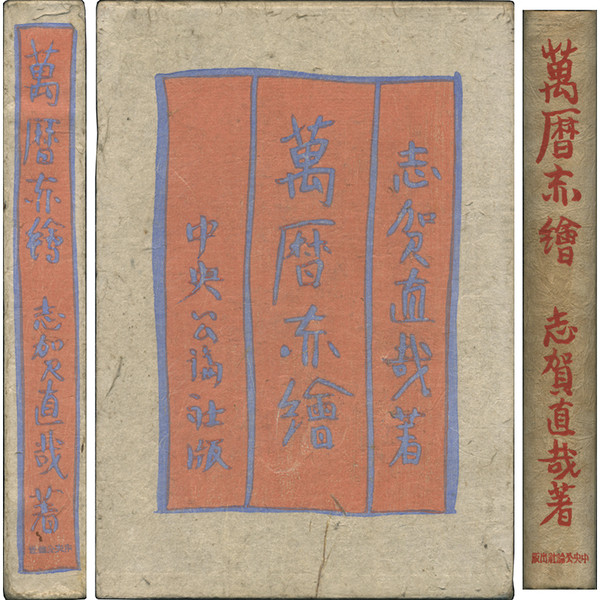 萬暦赤繪 志賀直哉著
中央公論社版
志賀直哉著
萬暦赤繪
中央公論社版
萬暦赤繪 志賀直哉著
中央公論社出版